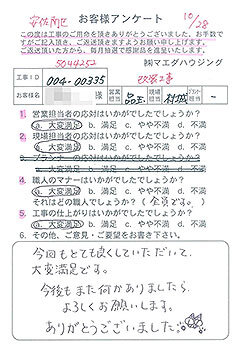 安佐南区
お客様アンケート
10/28
この度は工事のご用命を頂きありがとうございました。お手数で
すがご記入頂き、ご返送頂きますようお願い申し上げます。
ご返送頂いた方から、毎月抽選で感謝品を進呈いたします。
5044252 ㈱マエダハウジング
工事ID 004-00335 改装工事
お客様名 様 営業担当 現場担当 村城 －
1. 営業担当者の応対はいかがでしたでしょうか?
a. 大変満足 b. 満足 c. やや不満 d. 不満
2. 現場担当者の応対はいかがでしたでしょうか?
a. 大変満足 b. 満足 c. やや不満 d. 不満
3. プランナーの応対はいかがでしたでしょうか?
a. 大変満足 b. 満足 c. やや不満 d. 不満
4. 職人のマナーはいかがでしたでしょうか?
a. 大変満足 b. 満足 c. やや不満 d. 不満
それはどの職人でしょうか?(全員です。)
5. 工事の仕上がりはいかがでしたでしょうか?
a. 大変満足 b. 満足 c. やや不満 d. 不満
6. その他、ご意見・ご要望をお書き下さい。
今回もとても良くしていただいて、
大変満足です。
今後もまた何かありましたら、
よろしくお願いします。
ありがとうございました